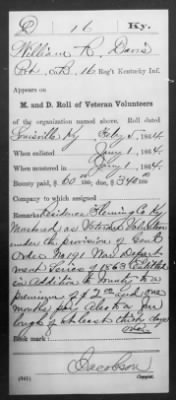 D 16 Ky.
William R. Davis
Pvt, Co. B, 16 Reg't Kentucky Inf.
Appears on
M. and D. Roll of Veteran Volunteers
of the organization named above. Roll dated
Louisville Ky Feby 5, 1864.
When enlisted Jany 1, 1864.
When mustered in Jany 1, 1864.
Bounty paid, $ 60 00/100; due, $ 340 00/100
Company to which assigned
Remarks: Residence Fleming Co Ky
Mustered as Veteran Volunteer
under the provision of Genl
Order No 191 War Depart
ment Series of 1863 Entitled
in Addition to bounty to a
premium of $2 and one
months pay Also to a fur
lough of at least thirty days
Book mark:
Jacobson
(941) Copyist.